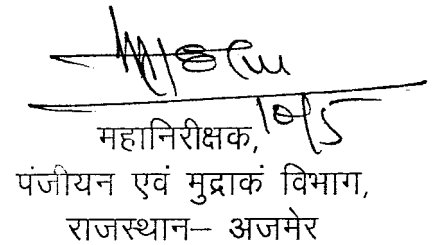 महानिरीक्षक,
पंजीयन एवं मुद्राकं विभाग,
राजस्थान– अजमेर